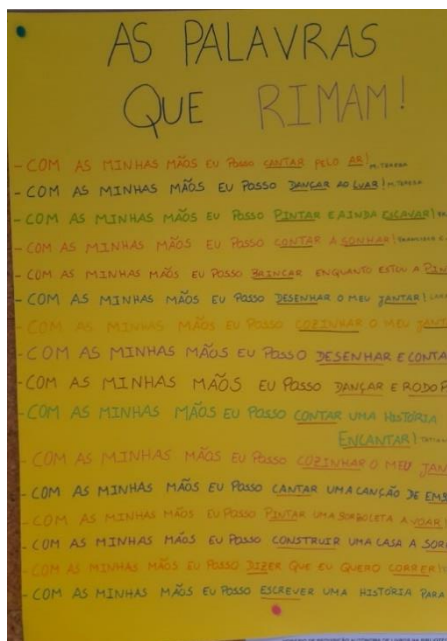 AS PALAVRAS
QUE RIMAM!
- COM AS MINHAS MÃOS EU POSSO CANTAR PELO AR! M. TERESA
- COM AS MINHAS MÃOS EU POSSO DANÇAR AO LUAR! M. TERESA
- COM AS MINHAS MÃOS EU POSSO PINTAR E AINDA ESCAVAR!
- COM AS MINHAS MÃOS EU POSSO CONTAR A SONHAR!
- COM AS MINHAS MÃOS EU POSSO BRINCAR ENQUANTO ESTOU A PIN
- COM AS MINHAS MÃOS EU POSSO DESENHAR O MEU JANTAR!
- COM AS MINHAS MÃOS EU POSSO COZINHAR O MEU JANT
- COM AS MINHAS MÃOS EU POSSO DESENHAR E CONTA
- COM AS MINHAS MÃOS EU POSSO DANÇAR E RODOP
- COM AS MINHAS MÃOS EU POSSO CONTAR UMA HISTÓRIA
ENCANTAR!
- COM AS MINHAS MÃOS EU POSSO COZINHAR O MEU JAN
- COM AS MINHAS MÃOS EU POSSO CANTAR UMA CANÇÃO DE EMB
- COM AS MINHAS MÃOS EU POSSO PINTAR UMA BORBOLETA A VOAR!
- COM AS MINHAS MÃOS EU POSSO CONSTRUIR UMA CASA A SOR
- COM AS MINHAS MÃOS EU POSSO DIZER QUE EU QUERO CORRER!
- COM AS MINHAS MÃOS EU POSSO ESCREVER UMA HISTÓRIA PARA